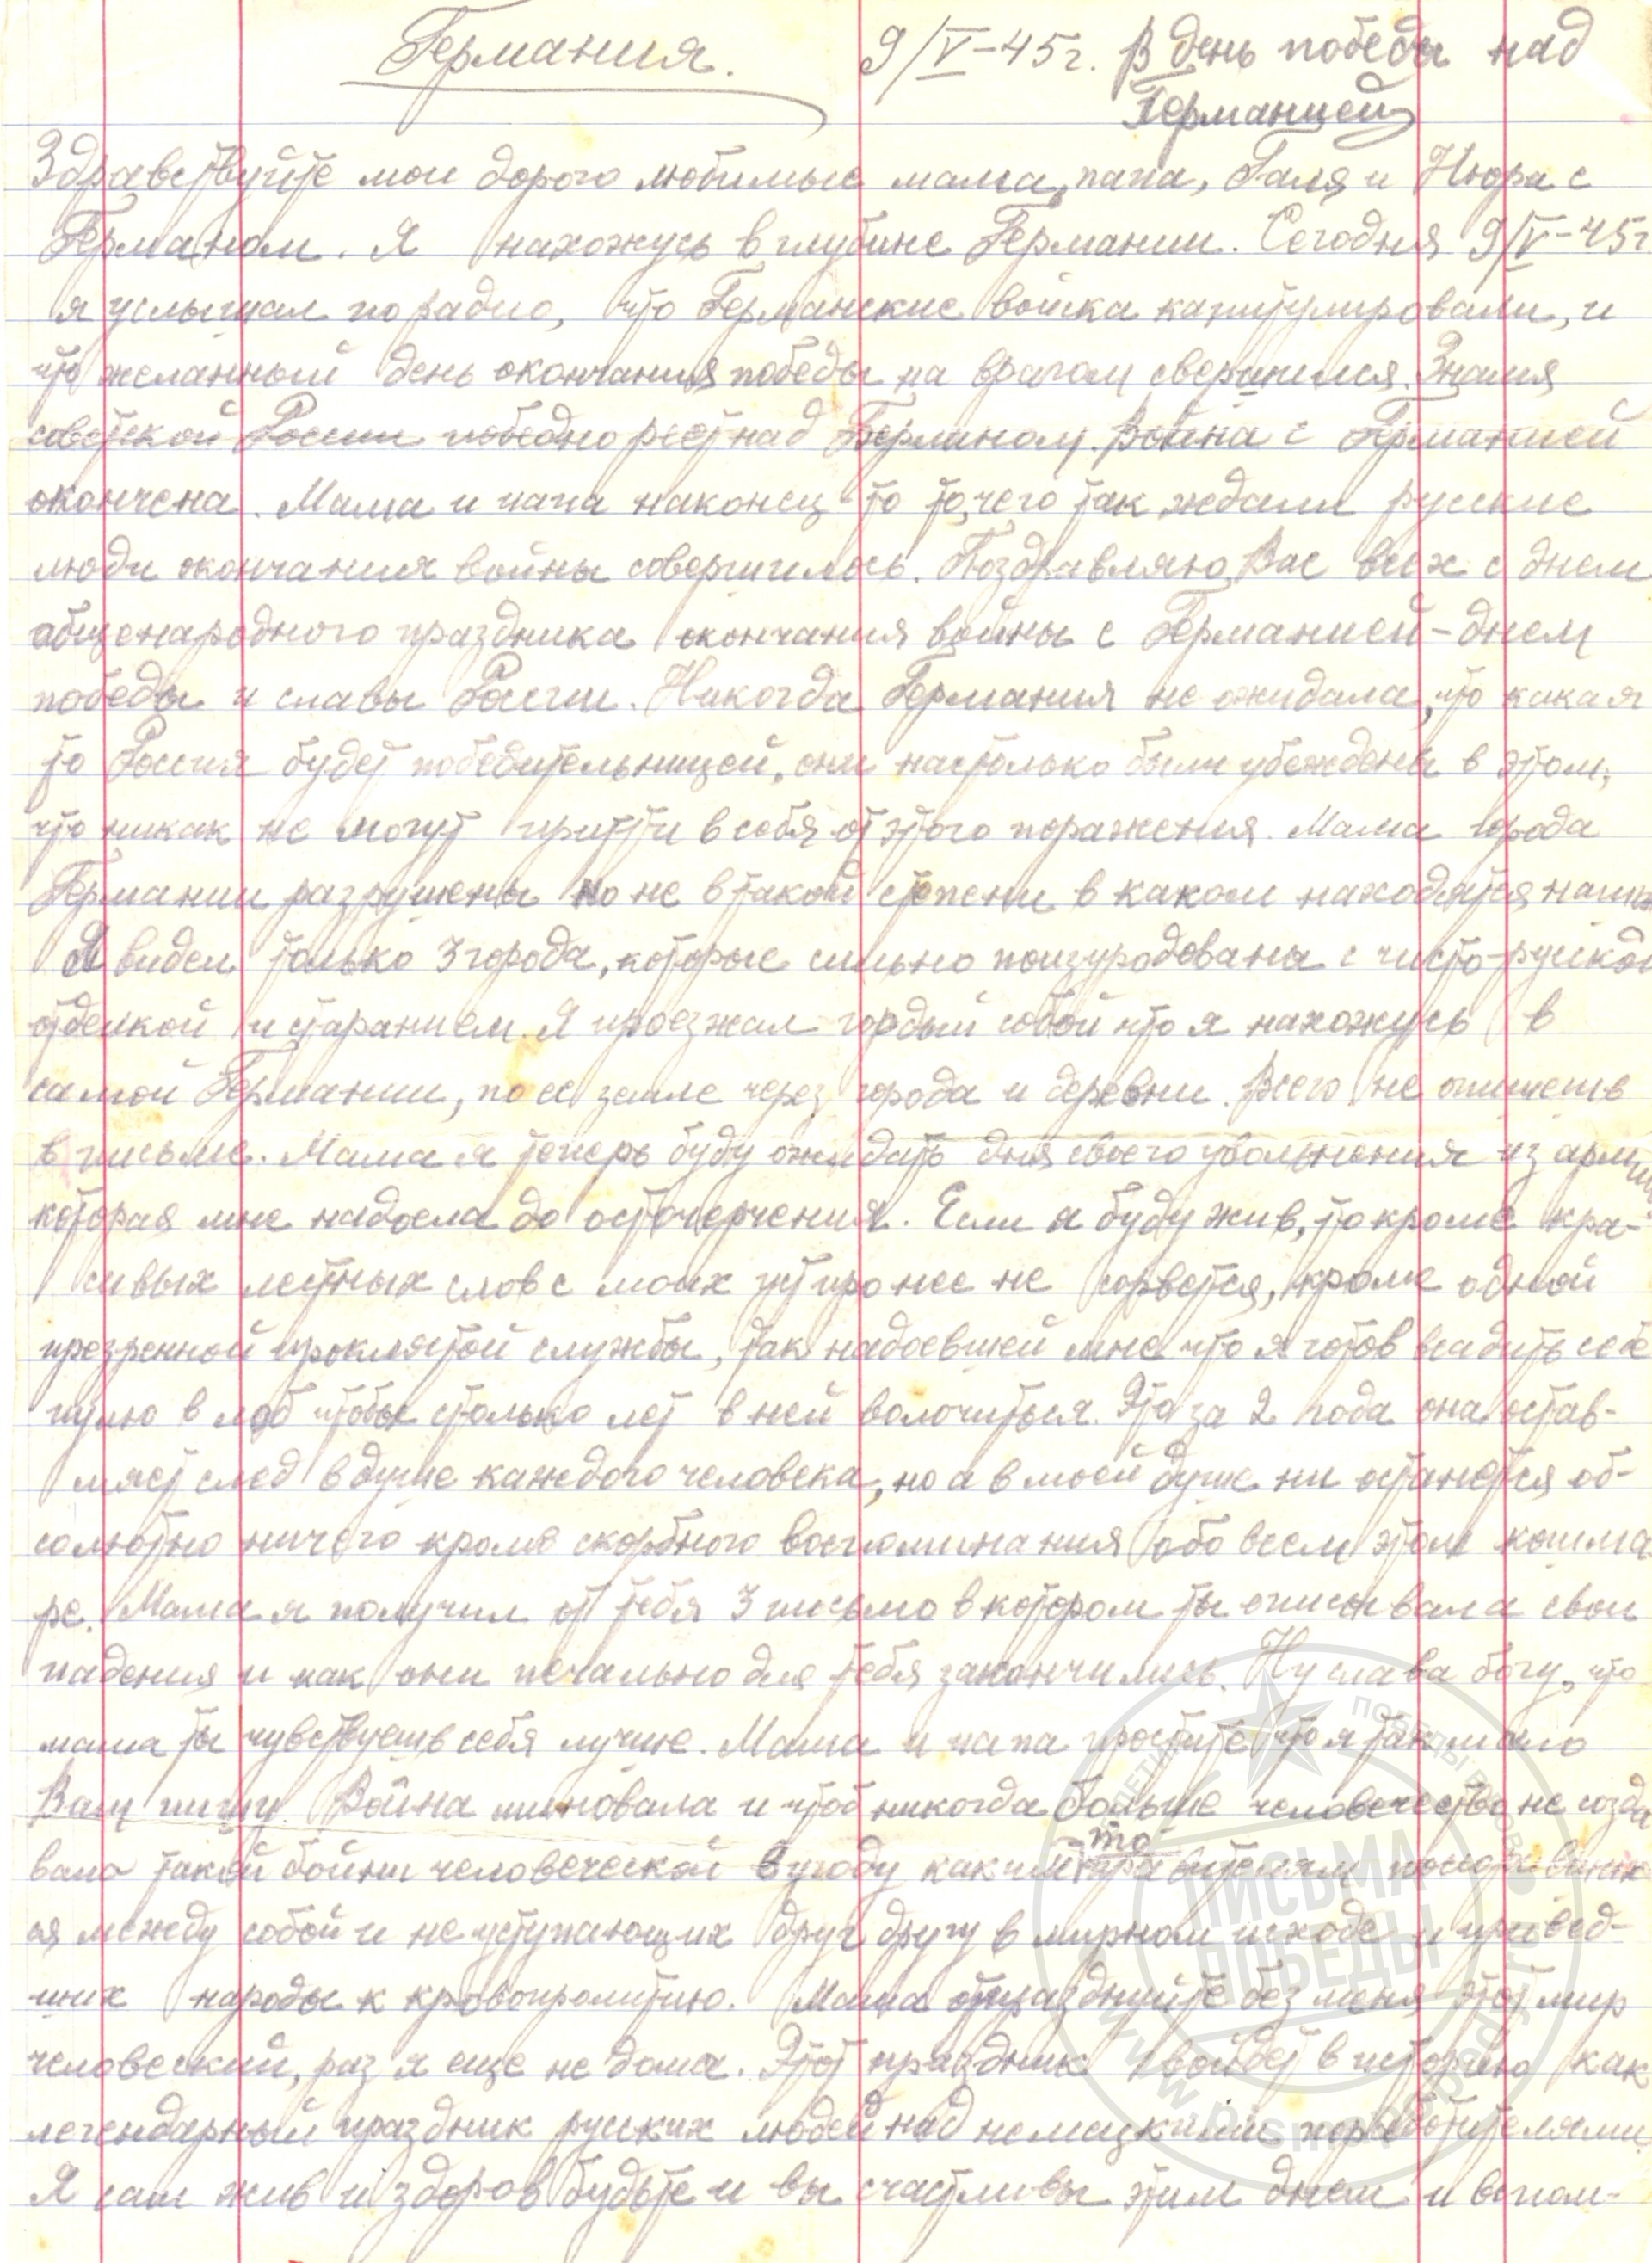 Германия. 9/V-45г. В день победы над
Германией
Здравствуйте мои дорого любимые мама, папа, Галя и Нюра с
Германом. Я нахожусь в глубине Германии. Сегодня 9/V-45г
я услышал по радио, что Германские войска капитулировали, и
что желанный день окончания победы на врагом свершился. Знамя
советской России победно реет над Берлином. Война с Германией
окончена. Мама и папа наконец-то то, чего так ждали русские
люди окончания войны совершилось. Поздравляю Вас всех с днем
общенародного праздника окончания войны с Германией-днем
победы и славы России. Никогда Германия не ожидала, что какая
то Россия будет победительницей, они настолько были убеждены в этом,
что никак не могут притти в себя от этого поражения. Мама города
Германии разрушены но не в такой степени в каком находятся наши
Я видел только 3 города, которые сильно поизуродованы с чисто-русской
отделкой и старанием. Я проезжал гордый собой что я нахожусь в
самой Германии, по ее земле через города и деревни. Всего не опишешь
в письме. Мама я теперь буду ожидать дня своего увольнения из армии
которая мне надоела до осточерчения. Если я буду жив, то кроме кра-
сивых лестных слов с моих уст про нее не сорвется, кроме одной
презренной проклятой службы, так надоевшей мне что я готов всадить себе
пулю в лоб чтобы столько лет в ней волочиться. Это за 2 года она остав-
ляет след в душе каждого человека, но а в моей душе ни останется аб-
солютно ничего кроме скорбного воспоминания обо всем этом кошма
ре. Мама я получил от тебя 3 письмо в котором ты описывала свои
падения и как они печально для тебя закончились. Ну слава богу, что
мама ты чувствуешь себя лучше. Мама и папа простите что я так мало
Вам пишу. Война миновала и чтоб никогда больше человечество не созда
вало такой бойни человеческой в угоду каким-то правителям
ся между собой и не уступающих друг другу в мирном исходе и привед-
ших народы к кровопролитию. Мама отпразднуйте без меня этот мир
человеский, раз я еще не дома. Этот праздник войдет в историю как
легендарный праздник русских людей над немецкими поработителями
Я сам жив и здоров будьте и вы счастливы этим днем и вспом-
ПИСЬМА
ПОБЕДЫ